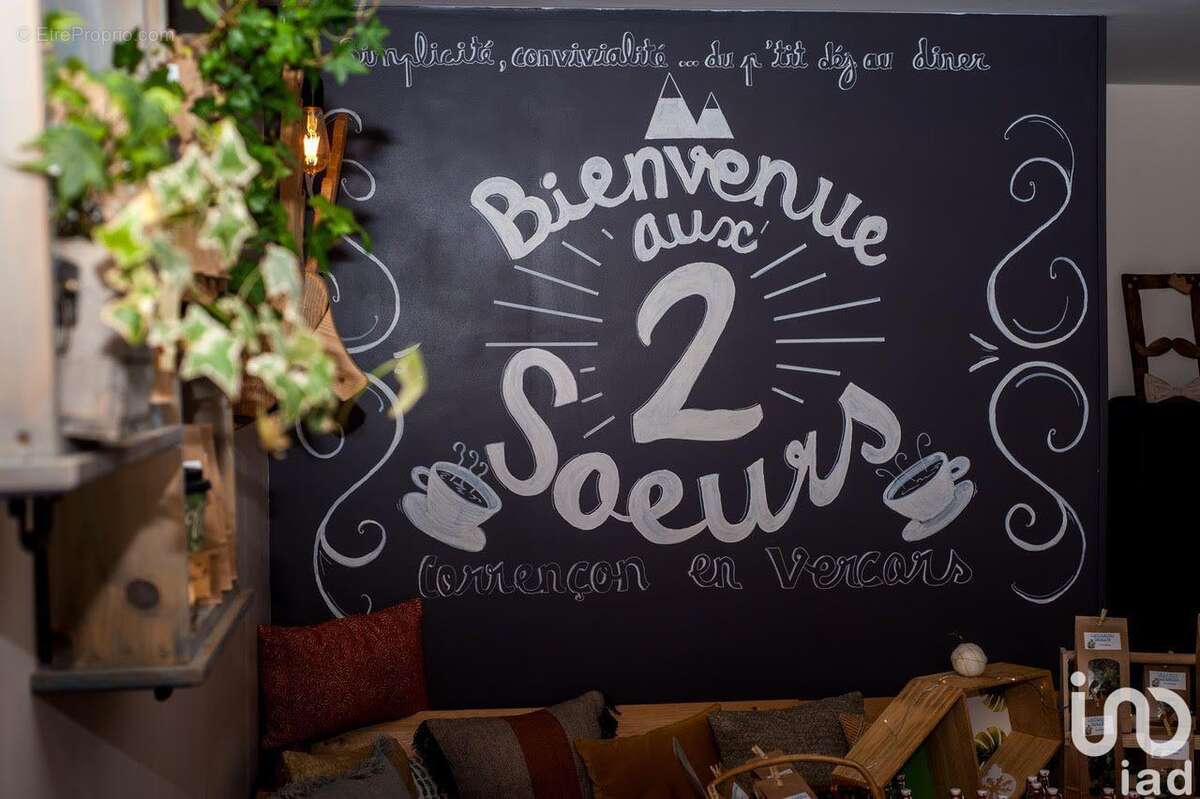 © EtreProprio.com
simplicité, convivialité ... du p'tit déj au dîner
Bienvenue
aux
2
Soeurs
Corrençon en Vercors
iad